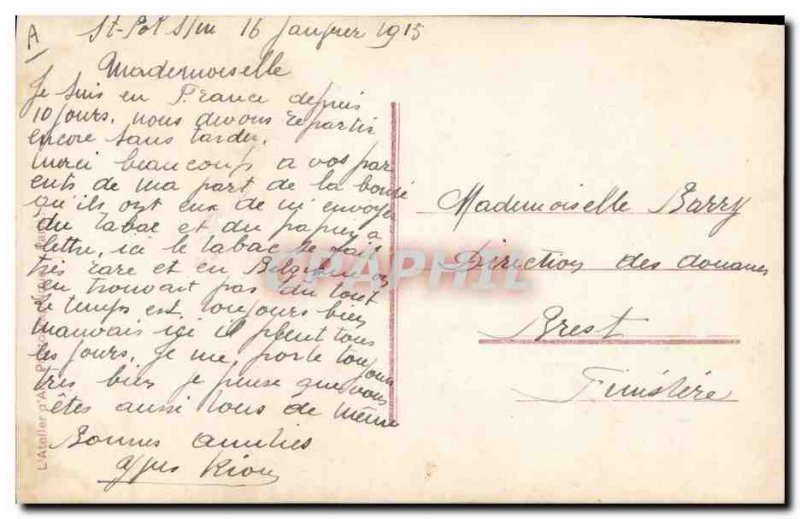 A
St-Pol s/m 16 janvier 1915
Mademoiselle
Je suis en France depuis
10 jours, nous devons repartir
encore sans tarder.
merci beaucoup a vos par
ents de ma part de la bonté
qu'ils ont eux de m'envoyer
du tabac et du papier a
lettre, ici le tabac se fait
très rare et en Belgique on
en trouvait pas du tout
le temps est toujours bien
mauvais ici il pleut tous
les jours, je me porte toujours
très bien je pense que vous
êtes aussi tous de même
Bonnes amitiés
Riou
Mademoiselle Barry
Direction des douanes
Brest
Finistère
L'Atelier d'Art
CPAPHIL